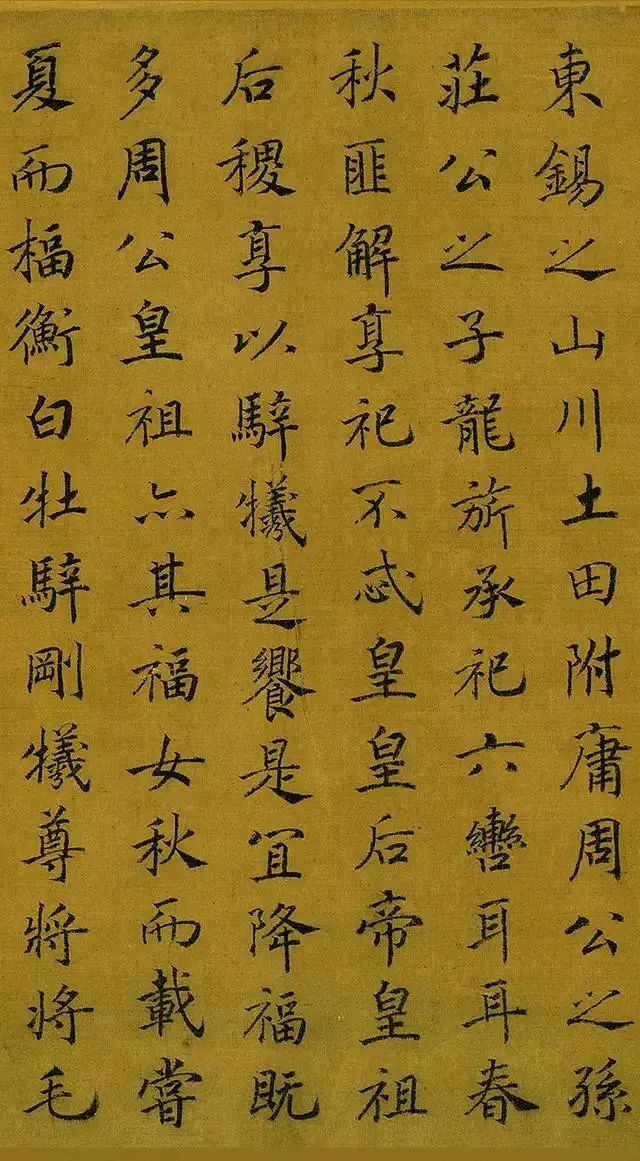 東錫之山川土田附庸周公之孫
莊公之子龍旂承祀六轡耳耳春
秋匪解享祀不忒皇皇后帝皇祖
后稷享以騂犧是饗是宜降福既
多周公皇祖亦其福女秋而載嘗
夏而楅衡白牡騂剛犧尊將將毛